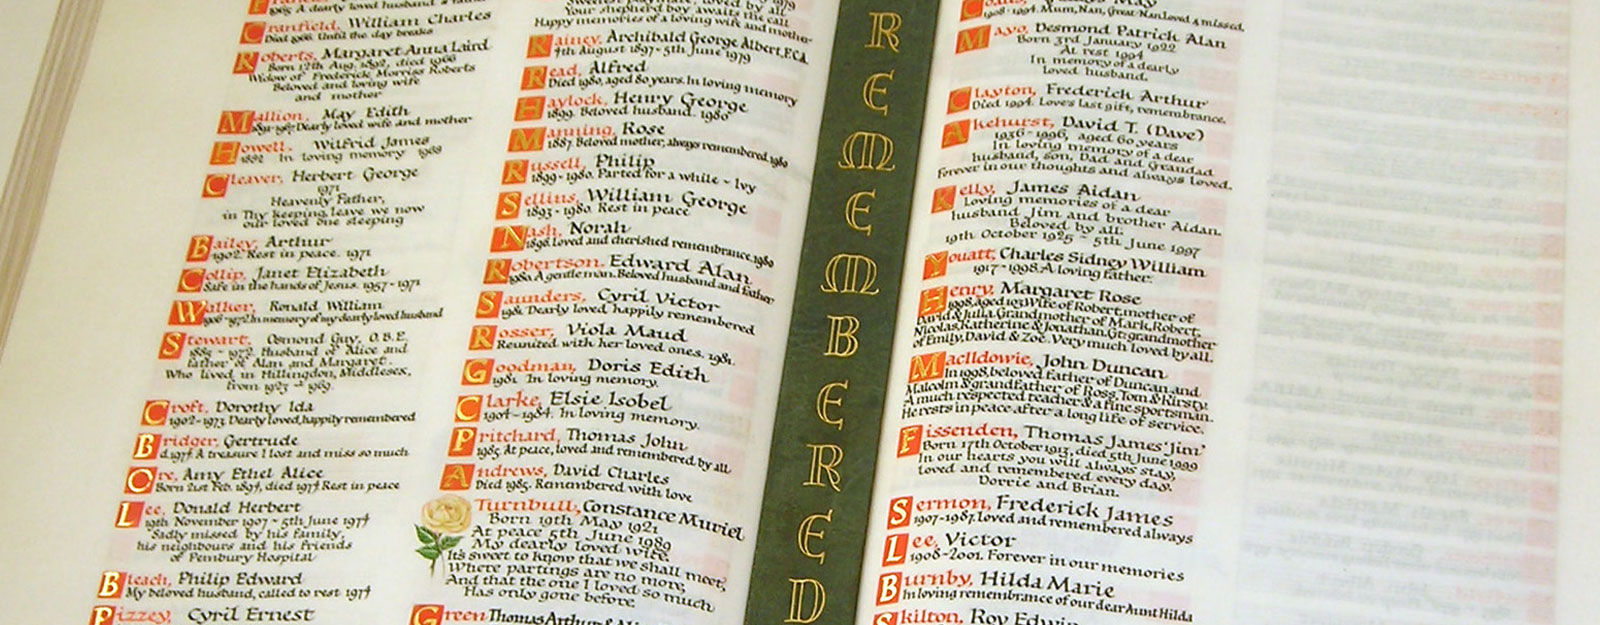 Cranfield, William Charles
Died 1966. Until the day breaks
Roberts, Margaret Anna Laird
Born 12th Aug. 1892, died 1966
Widow of Frederick Morriss Roberts
Beloved and loving wife
and mother
Mallion, May Edith
1891-1967 Dearly loved wife and mother
Howell, Wilfrid James
1882 In loving memory 1968
Cleaver, Herbert George
1971
Heavenly Father,
in Thy keeping, leave we now
our loved one sleeping
Bailey, Arthur
1902. Rest in peace. 1971
Collip, Janet Elizabeth
Safe in the hands of Jesus. 1957-1971
Walker, Ronald William
1906-1972. In memory of my dearly loved husband
Stewart, Osmond Guy, O.B.E.
1885-1972. Husband of Alice and
father of Alan and Margaret.
Who lived in Hillingdon, Middlesex,
from 1925-1969.
Croft, Dorothy Ida
1902-1973. Dearly loved, happily remembered
Bridger, Gertrude
d.1974 A treasure I lost and miss so much
Ore, Amy Ethel Alice
Born 21st Feb. 1894, died 1974 Rest in peace
Lee, Donald Herbert
19th November 1907 - 5th June 1974
Sadly missed by his family,
his neighbours and his friends
of Pembury Hospital
Bleach, Philip Edward
My beloved husband, called to rest 1974
Pizzey, Cyril Ernest
Your shepherd boy awaits the call
Happy memories of a loving wife and mother
Rainey, Archibald George Albert, F.C.A.
4th August 1897-5th June 1979
Read, Alfred
Died 1980, aged 80 years. In loving memory
Haylock, Henry George
1899. Beloved husband. 1980
Manning, Rose
1887. Beloved mother, always remembered. 1980
Russell, Philip
1899-1980. Parted for a while - Ivy
Sellins, William George
1893-1980. Rest in peace
Nash, Norah
1896. Loved and cherished remembrance. 1980
Robertson, Edward Alan
1980. A gentle man. Beloved husband and father
Saunders, Cyril Victor
1981. Dearly loved, happily remembered
Rosser, Viola Maud
Reunited with her loved ones. 1981.
Goodman, Doris Edith
1981. In loving memory.
Clarke, Elsie Isobel
1904-1984. In loving memory.
Pritchard, Thomas John
1985. At peace, loved and remembered by all
Andrews, David Charles
Died 1985. Remembered with love
Turnbull, Constance Muriel
Born 19th May 1921
At peace 5th June 1989
My dearly loved wife.
It's sweet to know that we shall meet,
Where partings are no more,
And that the one I loved so much
Has only gone before.
Green Thomas Arthur &
REMEMBERED
1908-1994. Mum, Nan, Great Nan loved & missed.
Mayo, Desmond Patrick Alan
Born 3rd January 1922
At rest 1994
In memory of a dearly
loved husband.
Clayton, Frederick Arthur
Died 1994. Love's last gift, remembrance.
Akehurst, David T. (Dave)
1936-1996, aged 60 years
In loving memory of a dear
husband, son, Dad and Grandad
Forever in our thoughts and always loved.
Kelly, James Aidan
Loving memories of a dear
husband Jim and brother Aidan.
Beloved by all.
19th October 1925 - 5th June 1997
Youatt, Charles Sidney William
1917-1998. A loving father.
Henry, Margaret Rose
1998, aged 103 Wife of Robert, mother of
David & Julia. Grandmother of Mark, Robert,
Nicolas, Katherine & Jonathan. Gt grandmother
of Emily, David & Zoë. Very much loved by all.
MacIldowie, John Duncan
In 1998, beloved father of Duncan and
Malcolm & grandfather of Ross, Tom & Kirsty.
A much respected teacher & a fine sportsman.
He rests in peace after a long life of service.
Fissenden, Thomas James 'Jim'
Born 17th October 1913, died 5th June 1999
In our hearts you will always stay,
loved and remembered every day.
Dorrie and Brian.
Sermon, Frederick James
1907-1987. loved and remembered always
Lee, Victor
1908-2001. Forever in our memories
Burnby, Hilda Marie
In loving remembrance of our dear Aunt Hilda
Skilton, Roy Edwin